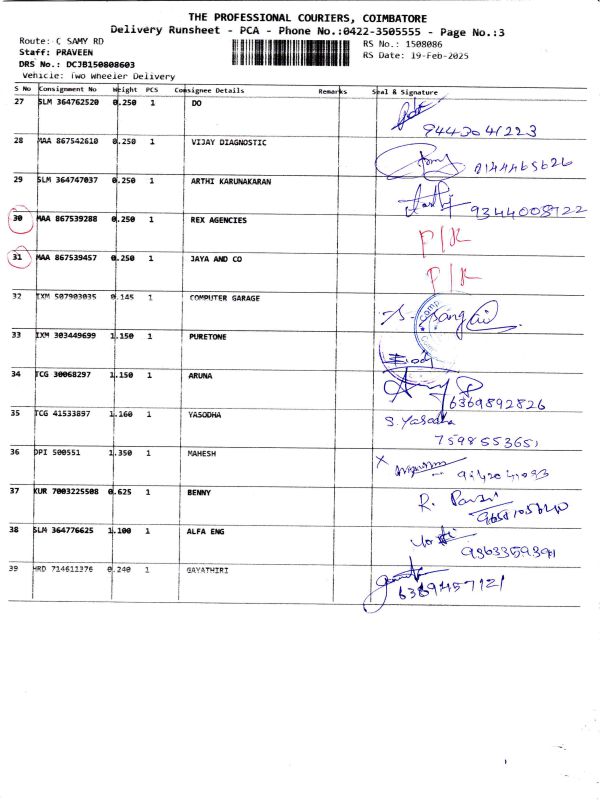 THE PROFESSIONAL COURIERS, COIMBATORE
Delivery Runsheet - PCA - Phone No.:0422-3505555 - Page No.:3
Route: C SAMY RD
RS No.: 1508086
Staff: PRAVEEN
RS Date: 19-Feb-2025
DRS No.: DCJB150808603
Vehicle: Two Wheeler Delivery
S No Consignment No Weight PCS Consignee Details Remarks Seal & Signature
27 SLM 364762520 0.250 1 DO
9443041223
28 MAA 867542610 0.250 1 VIJAY DIAGNOSTIC
29 SLM 364747037 0.250 1 ARTHI KARUNAKARAN
9344005722
30 MAA 867539288 0.250 1 REX AGENCIES
P/K
31 MAA 867539457 0.250 1 JAYA AND CO
P/K
32 IXM 507903035 0.145 1 COMPUTER GARAGE
33 IXM 303449699 1.150 1 PURETONE
34 TCG 30068297 1.150 1 ARUNA
6369892826
35 TCG 41533897 1.160 1 YASODHA
S. Yasodha
7598553651
36 DPI 500551 1.350 1 MAHESH
X
37 KUR 7003225508 0.625 1 BENNY
38 SLM 364776625 1.100 1 ALFA ENG
9363359391
39 HRD 714611376 0.240 1 GAYATHIRI
6389457121